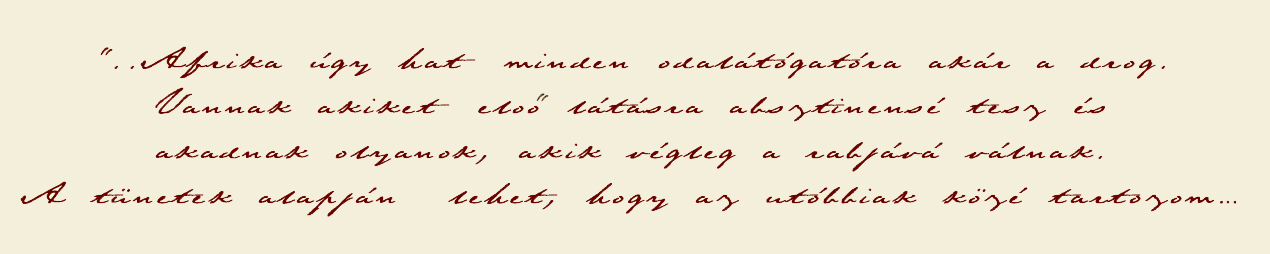 "..Afrika úgy hat minden odalátógatóra akár a drog.
Vannak akiket eloő látásra absztinensé tesz és
akadnak olyanok, akik végleg a rabjává válnak.
A tünetek alapján lehet, hogy az utóbbiak közé tartozom...